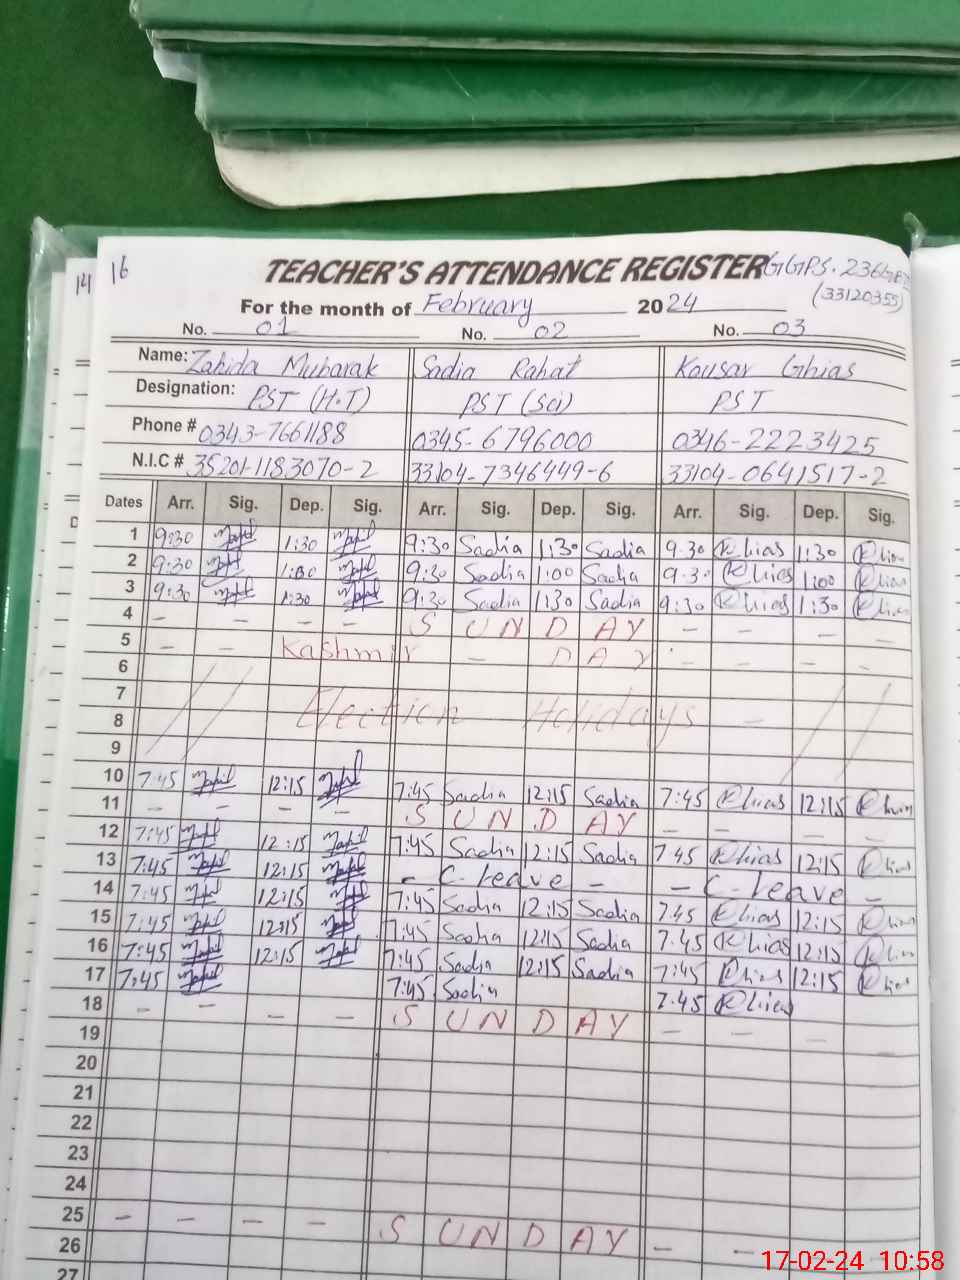 14
16
TEACHER'S ATTENDANCE REGISTER GGPS. 236GB
(33120355)
For the month of February 2024
No. 01 No. 02 No. 03
Name: Zahida Mubarak Sadia Rahat Kousar Ghias
Designation: PST (H.T) PST (Sci) PST
Phone # 0343-7661188 0345-6796000 0346-2223425
N.I.C # 35201-1183070-2 33104-7346449-6 33104-0641517-2
Dates Arr. Sig. Dep. Sig. Arr. Sig. Dep. Sig. Arr. Sig. Dep. Sig.
1 9:30 1:30 9:30 Sadia 1:30 Sadia 9.30 Khias 1:30
2 9:30 1:00 9:30 Sadia 1:00 Sadia 9.30 Khias 1:00
3 9:30 1:30 9:30 Sadia 1:30 Sadia 9:30 Khias 1:30
4 - - - - S U N D A Y - - - -
5 - - Kashmir - D A Y - - - -
6
7 Election Holidays -
8
9
10 7:45 12:15 7:45 Sadia 12:15 Sadia 7:45 Khias 12:15
11 - - - - S U N D A Y - - - -
12 7:45 12:15 7:45 Sadia 12:15 Sadia 7 45 Khias 12:15
13 7:45 12:15 - C- Leave - - C- Leave -
14 7:45 12:15 7:45 Sadia 12:15 Sadia 7.45 Khias 12:15
15 7:45 12:15 7:45 Sadia 12:15 Sadia 7:45 Khias 12:15
16 7:45 12:15 7:45 Sadia 12:15 Sadia 7:45 Khias 12:15
17 7:45 7:45 Sadia 7.45 Khias
18 - - - - S U N D A Y - - - -
19
20
21
22
23
24
25 - - - - S U N D A Y - -
26
27
17-02-24 10:58